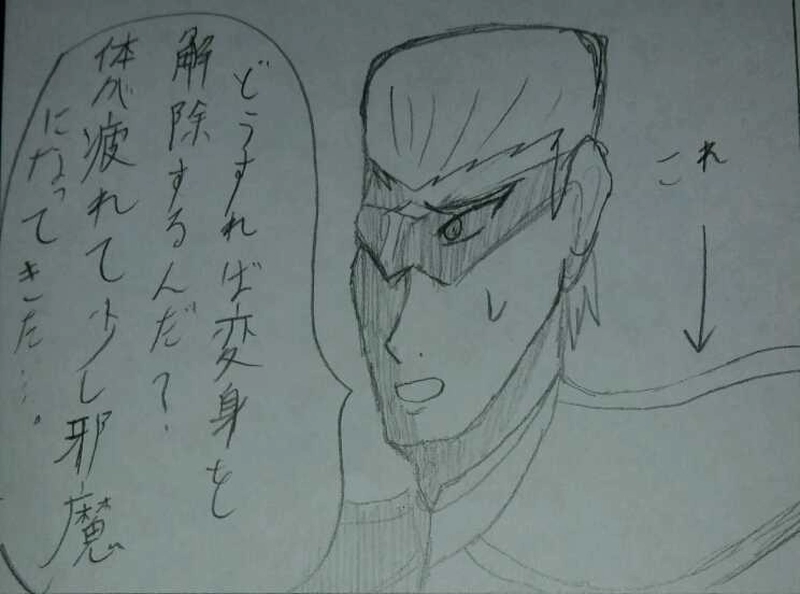 どうすれば変身を
解除するんだ？
体が疲れて少し邪魔
になってきた…。
これ